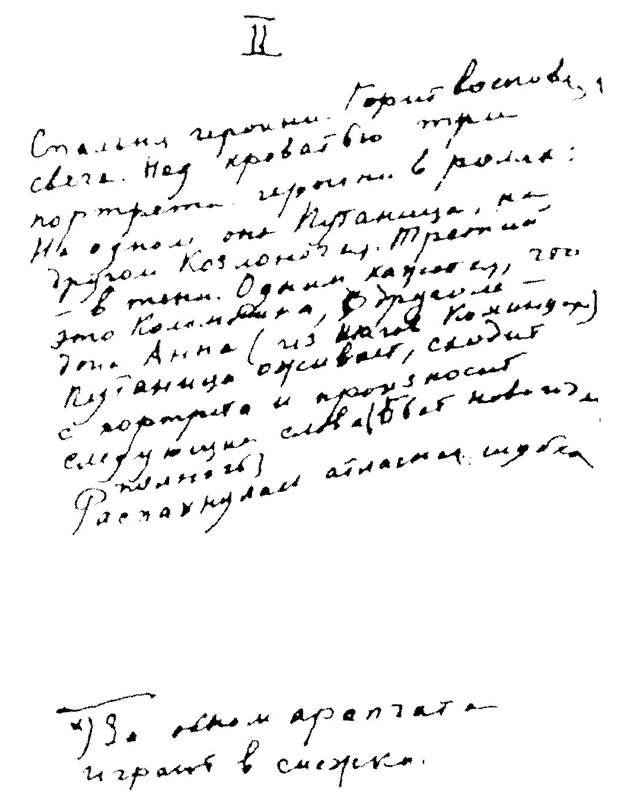 II
Спальня героини. Горит восковая
свеча. Над кроватью три
портрета героини в ролях:
На одном, она Путаница, на
другом Козлоногая. Третий
– в тени. Одним кажется, что
это Коломбина, другим –
дона Анна (из Шагов Командора)
Путаница оживает, сходит
с портрета и произносит
следующие слова (бьет новогодн
полночь)
Распахнулась атласная шубка
*) За окном арапчата
играют в снежки.